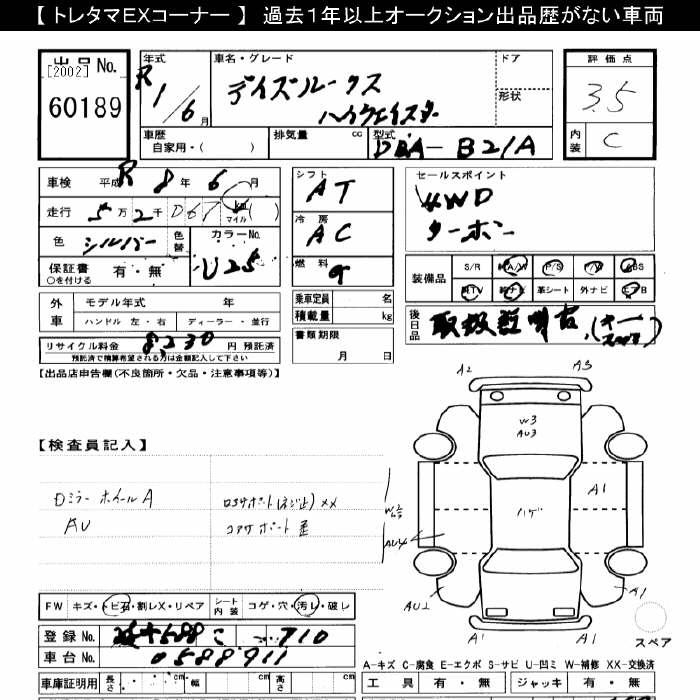 【 トレタマEXコーナー 】 過去1年以上オークション出品歴がない車両
出品 No.
[2002]
60189
年式
R
1/6
月
車名・グレード
デイズルークス
ハイウェイスター
ドア
形状
評価点
3.5
内装
C
車歴
自家用・( )
排気量 cc
型式
DBA- B21A
車検 平成 R 8 年 6 月
走行 5 万 2 千 067 km マイル ( )
色 シルバー
色替
カラーNo.
U25
保証書 有・無
○を付ける
シフト
AT
冷房
AC
燃料
g
セールスポイント
4WD
ターボ
装備品
S/R
純A/W
P/S
P/W
ABS
純TV
純ナビ
革シート
外ナビ
エアB
外車
モデル年式 年
ハンドル 左・右
ディーラー・並行
乗車定員 名
積載量 kg
後日品
取扱説明書
リサイクル料金 8,230 円 預託済
預託済で精算希望される方は金額記入して下さい
書類期限
月 日
【出品店申告欄(不良箇所・欠品・注意事項等)】
【検査員記入】
Dミラー ホイールA
AU
ロアサポート(ネジ止) XX
コアサポート
A2
A3
W3
AU3
A1
ハゲ
AU4
AU2
A1
A1
A1
スペア
FW キズ・トビ石・割レX・リペア
シート内装 コゲ・穴・汚レ・破レ
登録 No.
588 こ 710
車台 No.
0588911
A-キズ C-腐食 E-エクボ S-サビ U-凹ミ W-補修 XX-交換済
車庫証明用 長さ cm 幅 cm 高さ cm
工具 有・無 ジャッキ 有・無